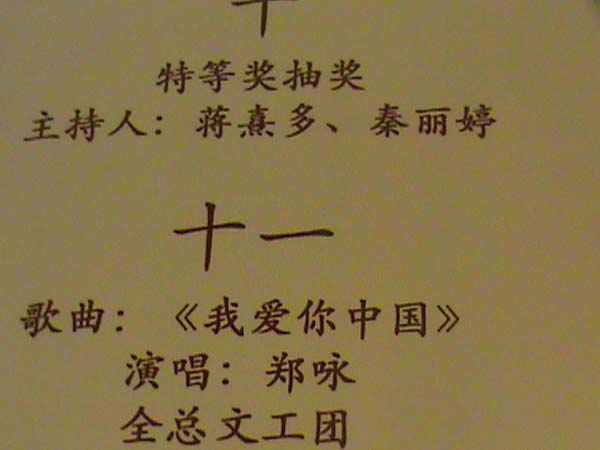 十
特等奖抽奖
主持人：蒋熹多、秦丽婷
十一
歌曲：《我爱你中国》
演唱：郑咏
全总文工团